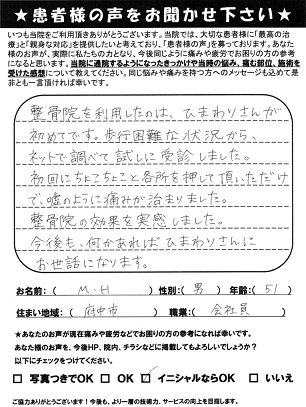 ★患者様の声をお聞かせ下さい★
いつも当院をご利用頂きありがとうございます。当院では、大切な患者様に「最高の治
療」と「親身な対応」を提供したいと考えており、「患者様の声」を募っております。あなた
様のお声が、実際に私たちの力となり、今後同じように痛みや疲労でお困りの方の参考
になると思います。当院に通院するようになったきっかけや当時の悩み、痛む部位、施術を
受けた感想について教えてください。同じ悩みや痛みを持つ方へのメッセージも込めて是
非とも一言頂ければ幸いです。
整骨院を利用したのは、ひまわりさんが
初めてです。歩行困難な状況から、
ネットで調べて試しに受診しました。
初回にちょこちょこと各所を押して頂いただけ
で、嘘のように痛みが治まりました。
整骨院の効果を実感しました。
今後も、何かあればひまわりさんに
お世話になります。
お名前:( M・H )性別:( 男 )年齢:( 51 )
住まい地域:( 府中市 )職業:( 会社員 )
★あなたのお声が現在痛みや疲労などでお困りの方の参考になれば幸いです。
あなた様のお声を、今後HP、院内、チラシなどに掲載してもよろしいでしょうか?
以下にチェックをつけてください。
□ 写真つきでOK □ OK ☑ イニシャルならOK □ いいえ
ご協力ありがとうございます!今後も、より一層の技術力、サービスの向上を目指します。